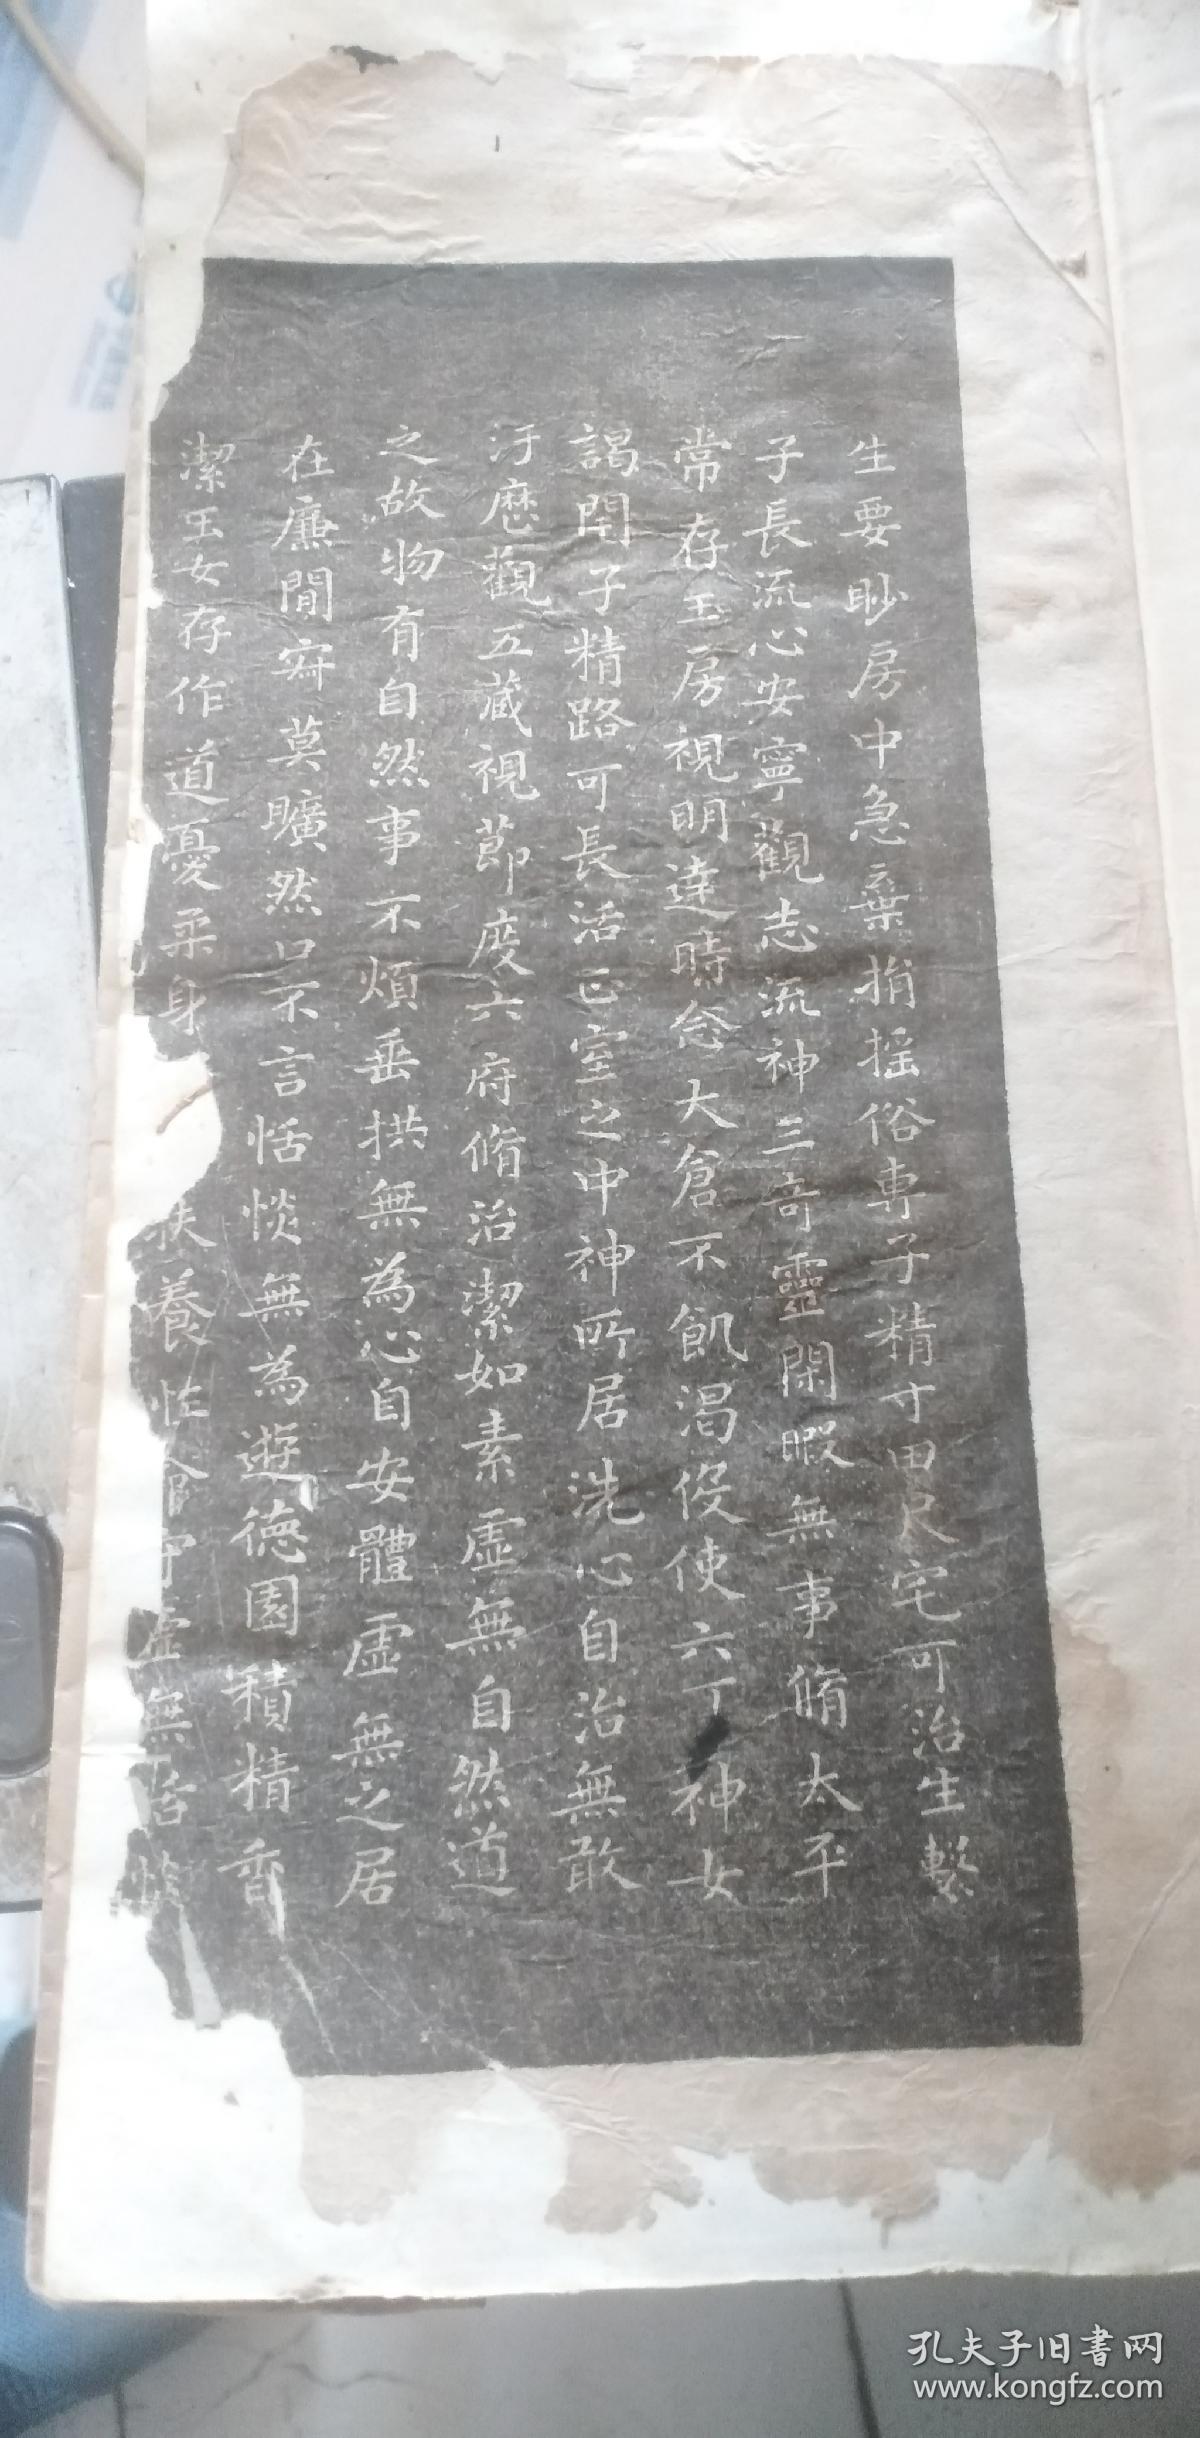 生要眇房中急棄捐揺俗專子精寸田尺宅可治生繫
子長流心安寧觀志流神三奇靈閑暇無事脩太平
常存玉房視明達時念大倉不飢渴役使六丁神女
謁閇子精路可長活正室之中神所居洗心自治無敢
汙歷觀五藏視節度六府脩治潔如素虛無自然道
之故物有自然事不煩垂拱無為心自安體虛無之居
在廉閒寂莫曠然口不言恬惔無為遊德園積精香
潔玉女存作道憂柔身養性守虛無恬惔
孔夫子旧书网
www.kongfz.com